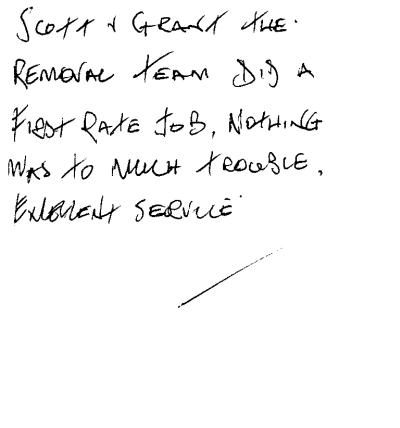 SCOTT & GRANT THE
REMOVAL TEAM DID A
FIRST RATE JOB, NOTHING
WAS TO MUCH TROUBLE.
EXCELLENT SERVICE